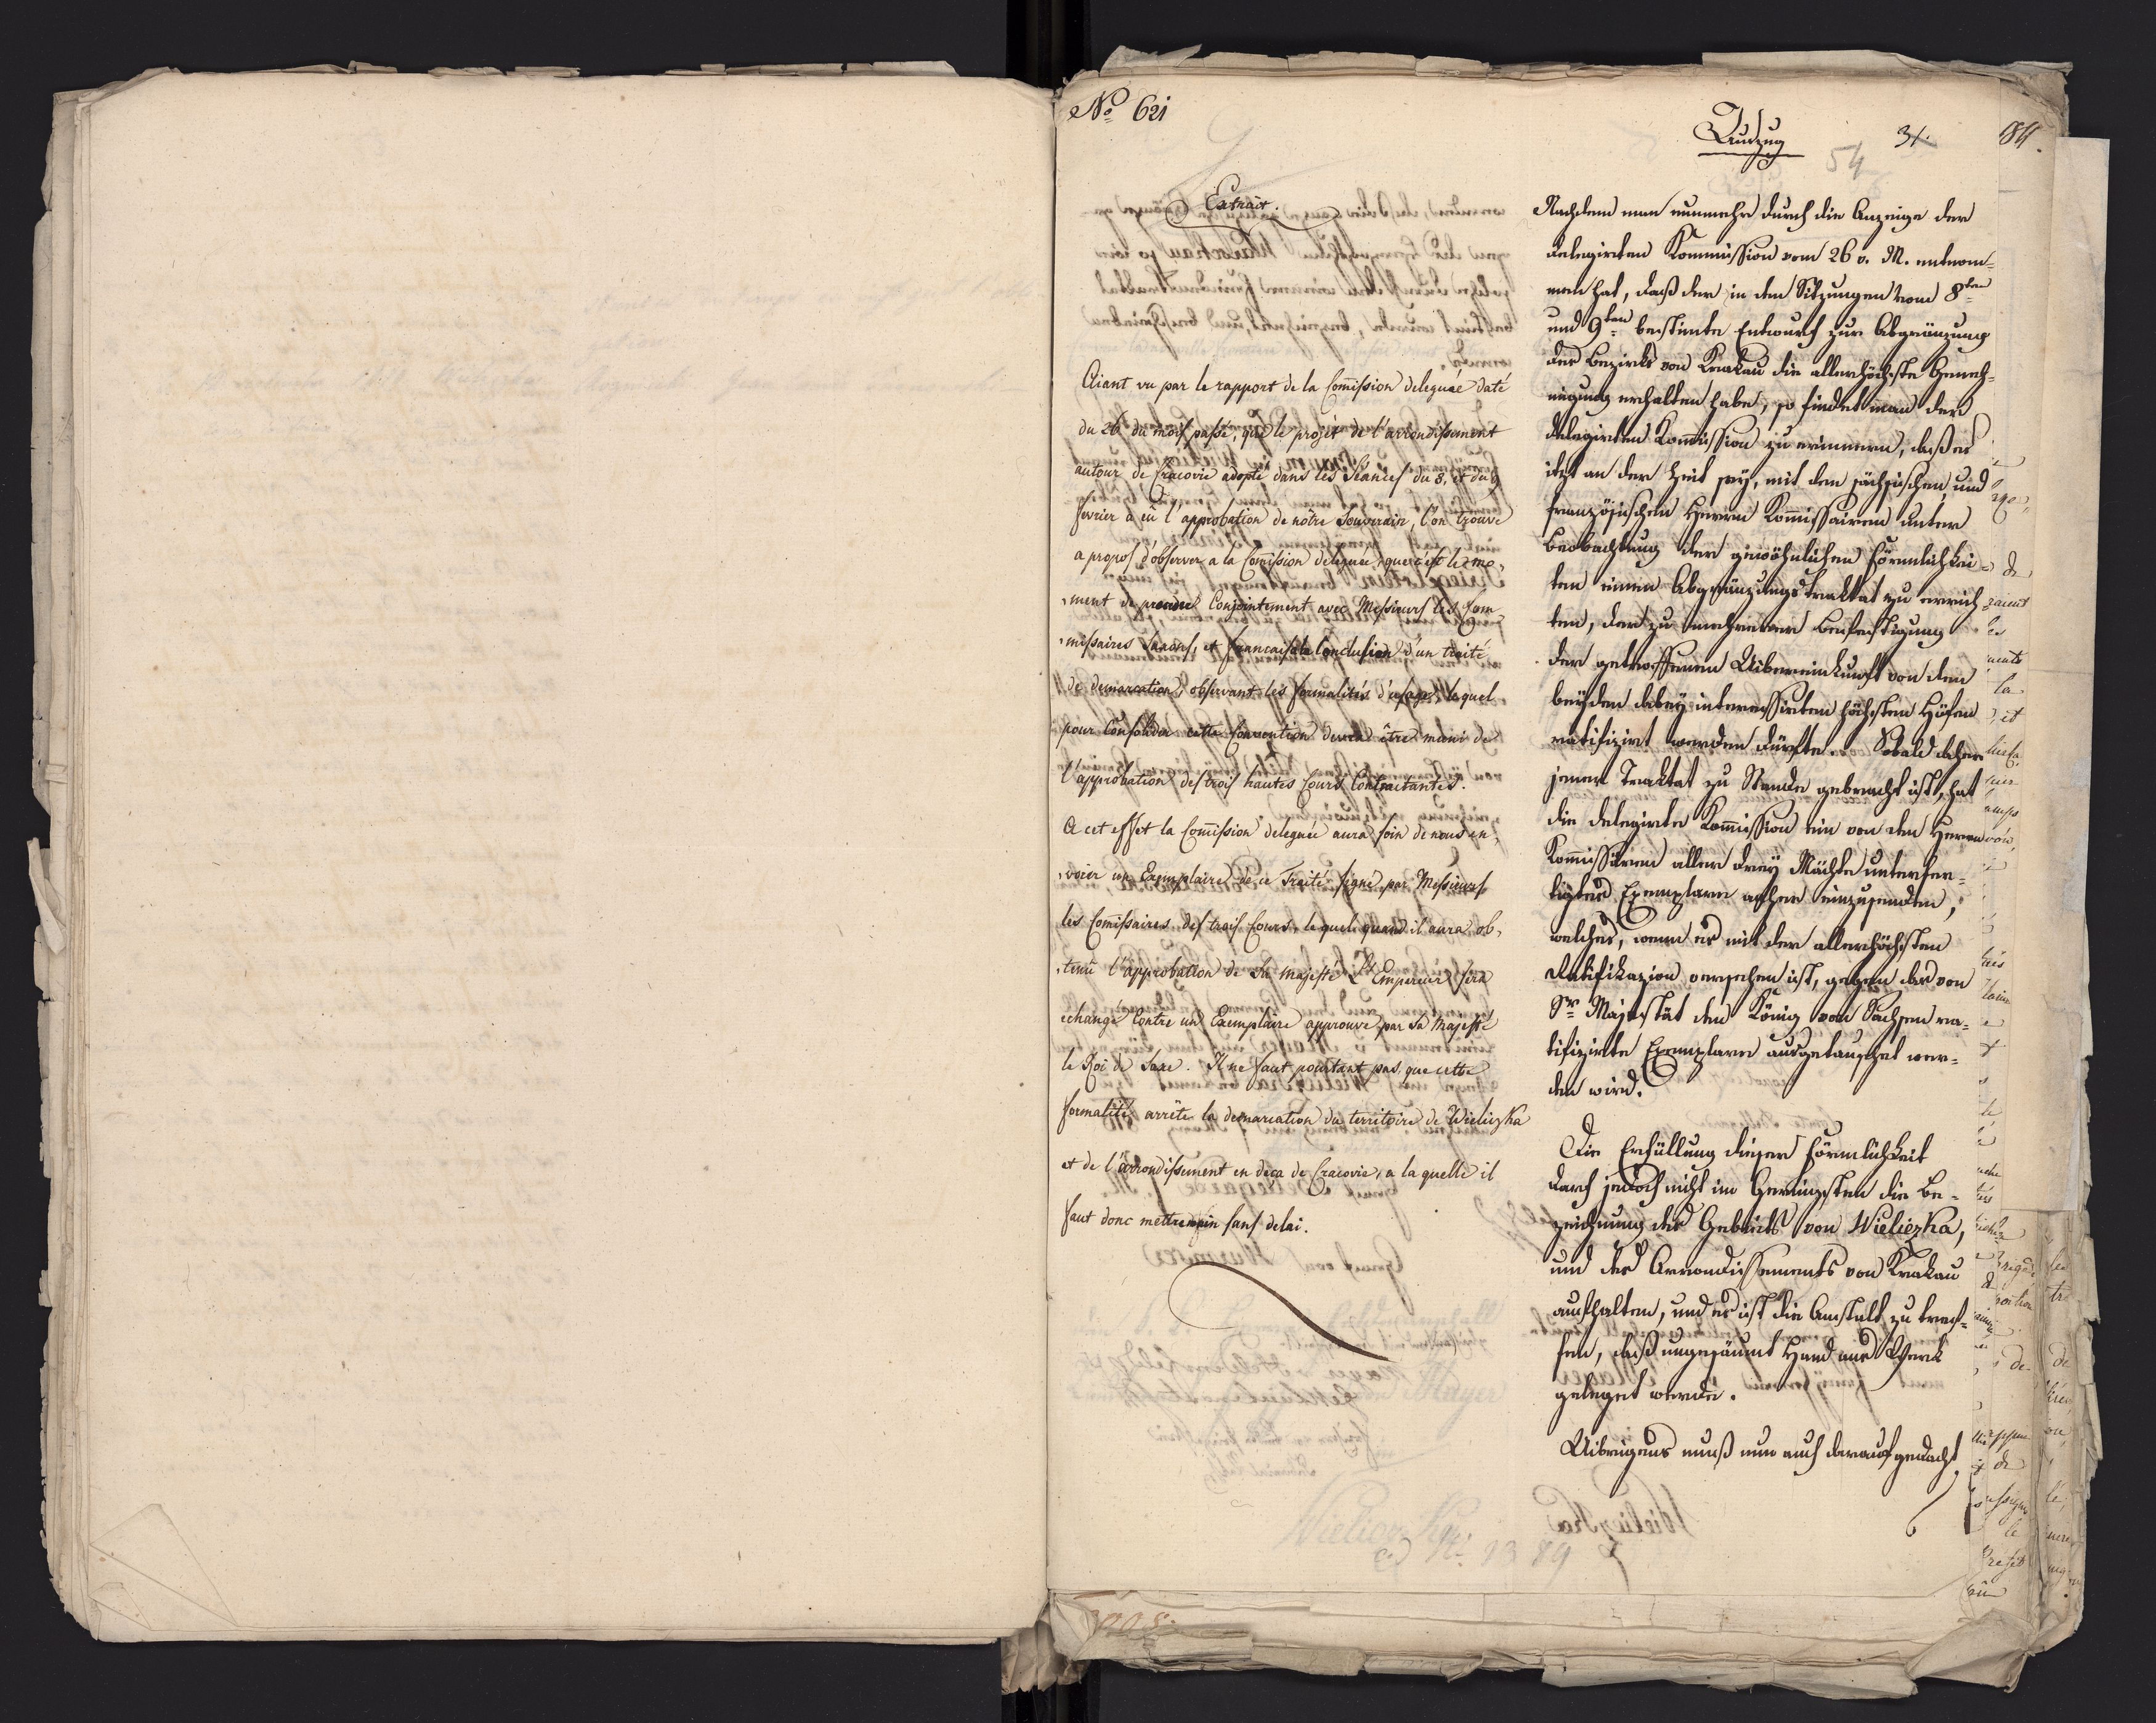 No 621
Auszug
31.
54
184.
Extrait.
Aiant vu par le rapport de la Com̅ission deleguée daté
du 26 du mois passé, que le projet de l'arrondissement
autour de Cracovie adopté dans les Séances du 8, et du 9
fevrier a eû l'approbation de nôtre Souverain, l'on trouve
a propos d'observer a la Com̅ission deleguée, que c'est le mo,
,ment de prendre Conjointement avec Messieurs les Com
,missaires Saxons, et francais la Conclusion d'un traité
de demarcation, observant les formalités d'usage, lequel
pour Consolider cette Convention devra être muni de
l'approbation des trois hautes Cours Contractantes.
A cet effet la Com̅ission deleguée aura soin de nous en,
,voier un Exemplaire de ce Traité signé par Messieurs
les Com̅issaires des trois Cours, lequel quand il aura ob,
,tenu l'approbation de Sa Majesté L'Empereur sera
echangé Contre un Exemplaire approuvé par Sa Majesté
le Roi de Saxe. Il ne faut pourtant pas que cette
formalité arrête la demarcation du territoire de Wieliczka
et de l'arrondissement en deça de Cracovie, a laquelle il
faut donc mettre main sans delai.
Nachdem man nunmehr durch die Anzeige der
delegirten Kommission vom 26 v. M. entnom=
men hat, daß der in den Sitzungen vom 8ten
und 9ten bestimte Entwurf zur Abgränzung
des Bezirks von Krakau die allerhöchste Geneh=
migung erhalten habe, so findet man der
delegirten Kom̅ission zu erinnern, daß es
itzt an der Zeit sey, mit den sächsischen und
französischen Herrn Kom̅issairen unter
Beobachtung der gewöhnlichen Förmlichkei=
ten einen Abgränzungs Traktat zu errich=
ten, der zu mehrerer Befestigung
der getroffenen Uibereinkunft von den
beyden dabey interessirten höchsten Höfen
ratifizirt werden dürfte. Sobald daher
jener Traktat zu Stande gebracht ist, hat
die delegirte Kom̅ission ein von den Herrn
Kom̅issären aller drey Mächte unterfer=
tigtes Exemplare anher einzusenden,
welches, wenn es mit der allerhöchsten
Ratifikazion versehen ist, gegen das von
Sr Majestät dem König von Sachsen ra=
tifizirte Exemplare ausgetauschet wer=
den wird.
Die Erfüllung dieser Förmlichkeit
darf jedoch nicht im Geringsten die Be=
zeichnung des Gebieths von Wieliczka,
und des Arrondissements von Krakau
aufhalten, und es ist die Anstalt zu tref=
fen, daß ungesäumt Hand ans Werk
geleget werde.
Uibrigens muß nun auch darauf gedacht